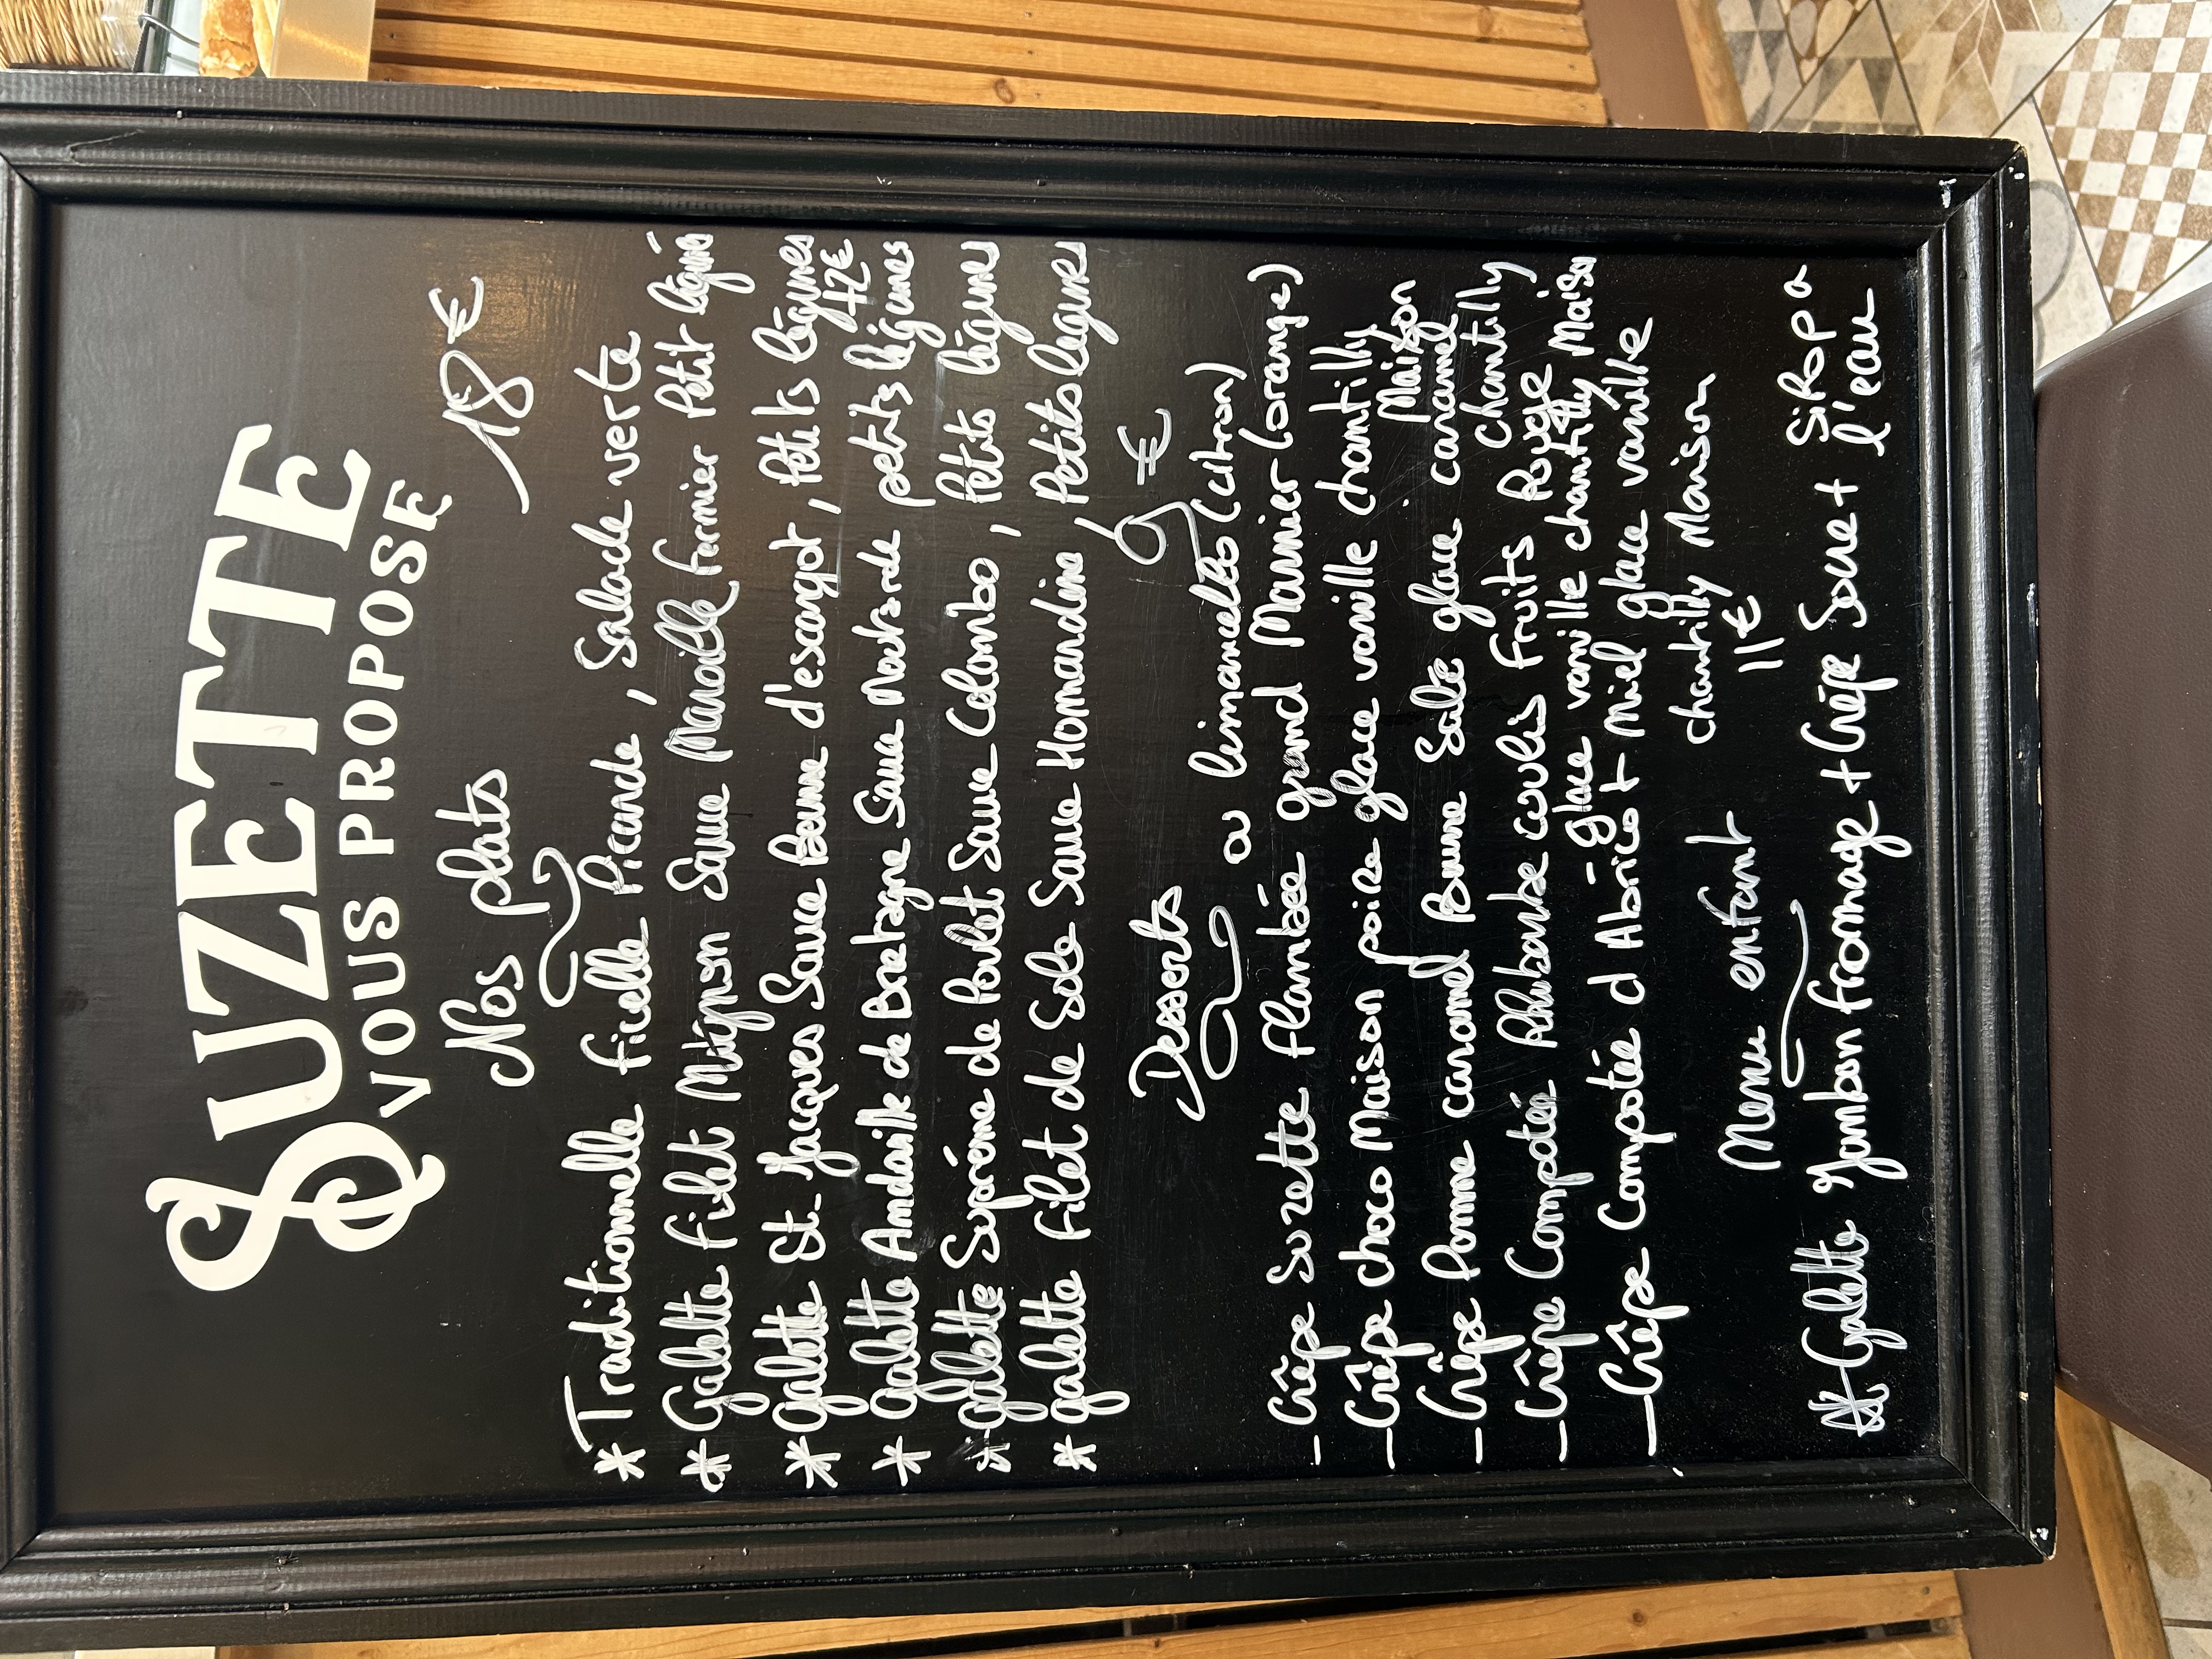 SUZETTE
VOUS PROPOSE
Nos plats 18 €
* Traditionnelle ficelle Picarde, Salade verte
* Galette filet Mignon Sauce Maroille fermier Petit légume
* Galette St. Jacques Sauce Beurre d'escargot, Petits légumes
+2€
* Galette Andouille de Bretagne Sauce Moutarde petits légumes
* galette Suprême de Poulet Sauce Colombo, Petits légumes
* galette filet de Sole Sauce Homardine, Petits légumes
Desserts 9 €
ou limoncello (citron)
- Crêpe Suzette flambée grand Marnier (orange)
- Crêpe choco Maison poire glace vanille chantilly
Maison
- Crêpe Pomme caramel Beurre Salé glace caramel
chantilly
- Crêpe Compotée Rhubarbe coulis fruits Rouge
- glace vanille chantilly Maison
- Crêpe Compotée d Abricot + Miel glace vanille
chantilly Maison
Menu enfant 11€
Galette Jambon fromage + Crêpe Sucre + Sirop a
l'eau